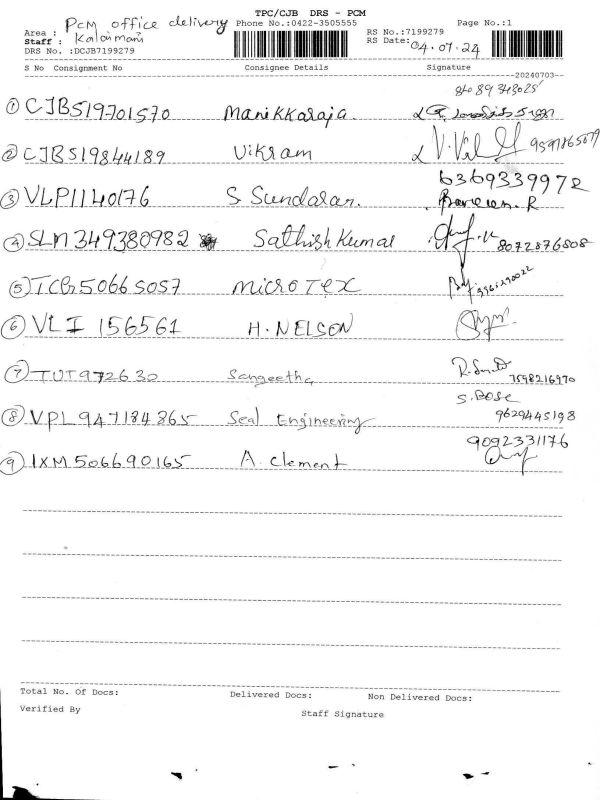 TPC/CJB DRS - PCM
Area : PCM office delivery Phone No.:0422-3505555 Page No.:1
Staff : Kalaimani RS No.:7199279
DRS No. :DCJB7199279 RS Date: 04.07.24
S No Consignment No Consignee Details Signature
20240703
① CJB519701570 Manikkaraja
② CJB519844189 Vikram
6369339972
③ VLP1140176 S Sundaran.
④ SLM349380982 Sathish Kumar 8072876808
⑤ TCB50665057 MICRO TEX
⑥ VLI 156561 H. NELSON
⑦ TUT972630 Sangeetha 7598216970
S. BOSE
⑧ VPL947184865 Seal Engineering 9629445198
9092331176
⑨ IXM506690165 A. Clement
Total No. Of Docs: Delivered Docs: Non Delivered Docs:
Verified By Staff Signature